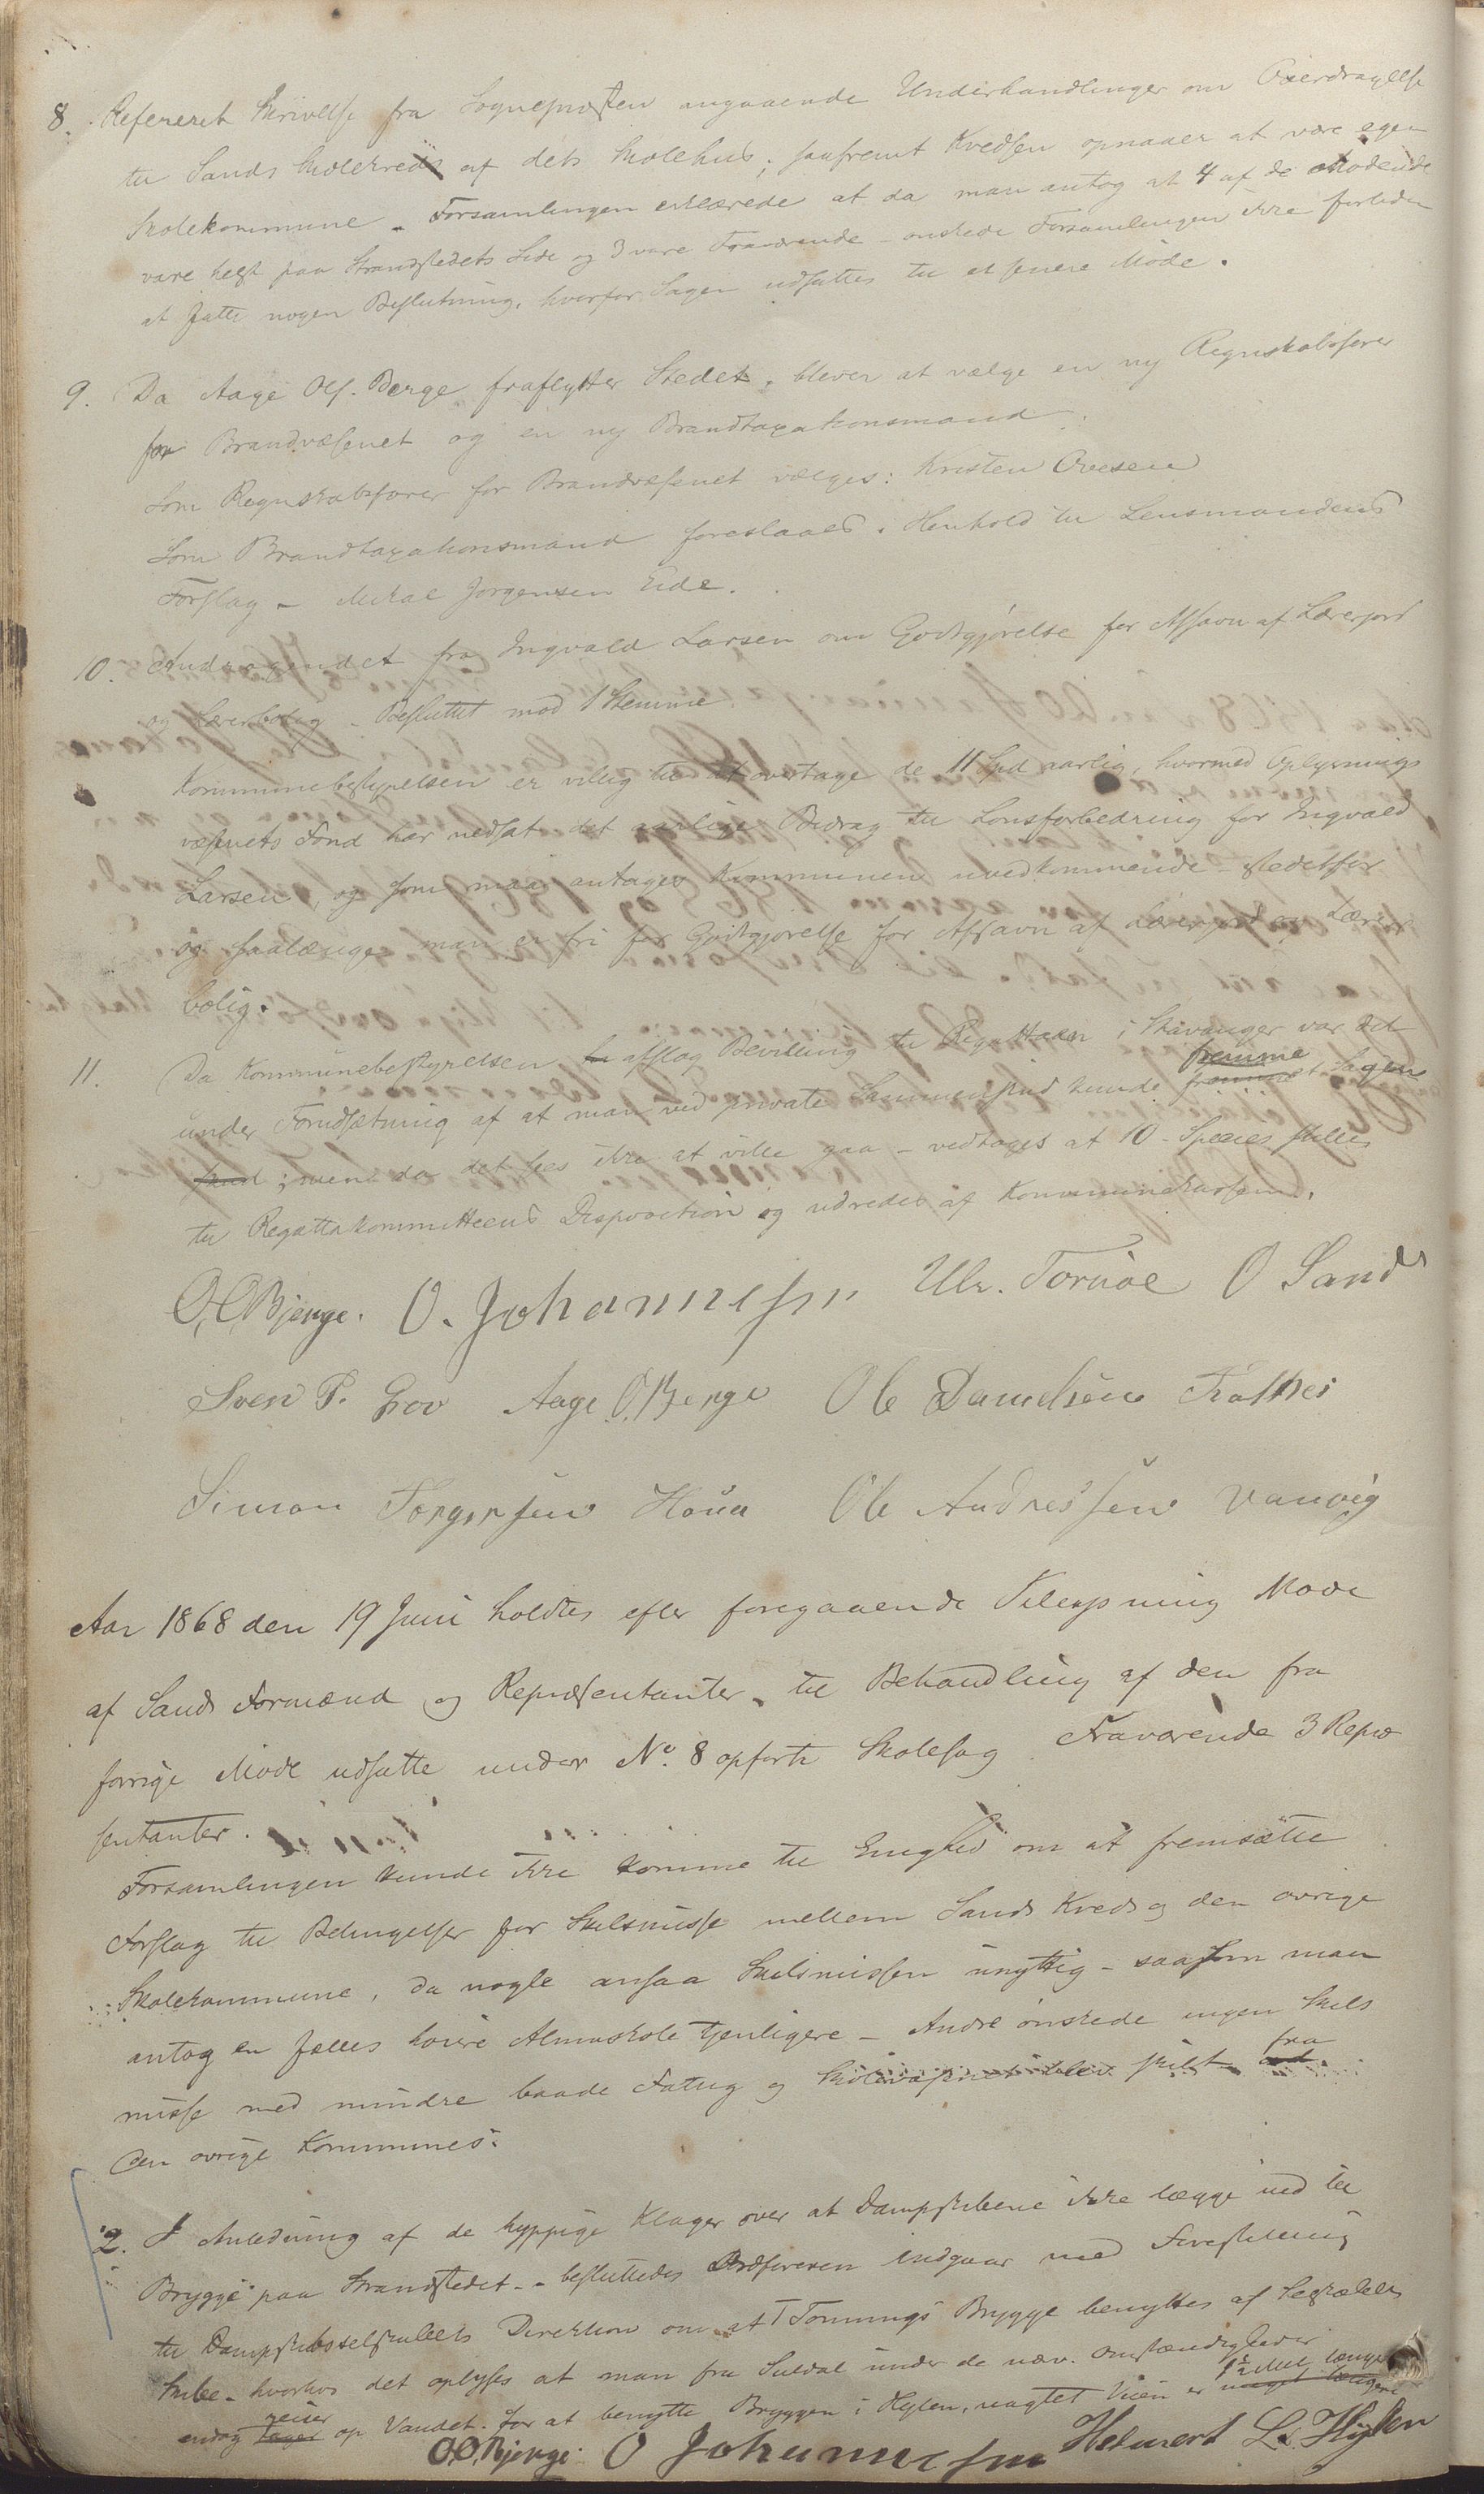 8. Refereret Skrivelse fra Sognepresten angaaende Underhandlinger om Overdragelse
til Sands Skolekreds af dets Skolehus, saafremt Kredsen opnaaer at være egen
Skolekommune. Forsamlingen erklærede at da man antog at 4 af de Mødende
vare helst paa Strandstedets Side og 3 vare Fraværende - ønskede Forsamlingen ikke
at fatte nogen Beslutning, hvorfor Sagen udsættes til et senere Møde.
9. Da Aage Ols. Berge fraflytter Stedet, bliver at vælge en ny Regnskabsfører
for Brandvæsenet og en ny Brandtaxationsmand.
Som Regnskabsfører for Brandvæsenet vælges: Kristen Ovesen
Som Brandtaxationsmand foreslaaes i Henhold til Lensmandens
Forslag - Mikal Jørgensen Eide.
10. Andragendet fra Ingvald Larsen om Godtgjørelse for Afsavn af Lærerjord
og Lærerbolig - Besluttet mod 1 Stemme
Kommunebestyrelsen er villig til at overtage de 11 Spd aarlig, hvormed Oplysnings
væsenets Fond har nedsat det aarlige Bidrag til Lønsforbedring for Ingvald
Larsen, og som maa antages Kommunen uvedkommende - istedetfor
og saalænge man er fri for Godtgjørelse for Afsavn af Lærerjord og Lærer
bolig.
11. Da Kommunebestyrelsen afslog Bevilling til Regattaen i Stavanger var det
under Forudsætning af at man ved private Sammenskud kunde fremme Sagen
; men da det sees ikke at ville gaa - vedtages at 10 - Species stilles
til Regattakommitteens Disposition og udredes af Kommunekassen.
O. O. Bjerge. O. Johannessen Ulr. Tornøe O Sand
Sven P. Grov Aage O. Berge Ole Danielsen
Simon Torgersen Ole Andreassen Vanvig
Aar 1868 den 19 Juni holdtes efter foregaaende Tillysning Møde
af Sands Formænd og Repræsentanter, til Behandling af den fra
forrige Møde udsatte under No. 8 opførte Skolesag Fraværende 3 Repræ
sentanter.
Forsamlingen kunde ikke komme til Enighed om at fremsætte
Forslag til Betingelser for Skilsmisse mellem Sands Kreds og den øvrige
Skolekommune, da nogle ansaa Skilsmissen unyttig - saasom man
antog en fælles høiere Almuskole tjenligere - Andre ønskede ingen Skils
misse med mindre baade Fattig og Skolevæsenet blev skilt fra
den øvrige Kommunes.
2. I Anledning af de hyppige Klager over at Dampskibene ikke lægge ind til
Brygge paa Strandstedet - besluttedes Ordføreren indgaar med Forestilling
til Dampskibsselskabets Direktion om at T Tonnings Brygge benyttes af Selskabets
Skibe - hvorhos det oplyses at man fra Suldal under de næv. Omstændigheder
endog reiser op Vandet for at benytte Bryggen i Hylen, uagtet Veien er 1/2 Mil længere
O. O. Bjerge. O Johannessen Helmert L. Hylen